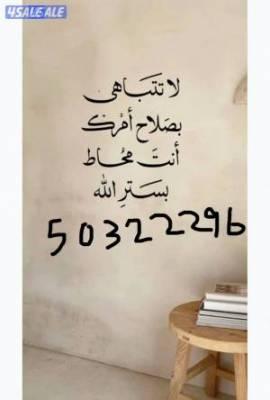 4SALE ALE
لا تتباهى
بصَلاح أمْرك
أنتَ محُاط
بسَترِ الله
50322296